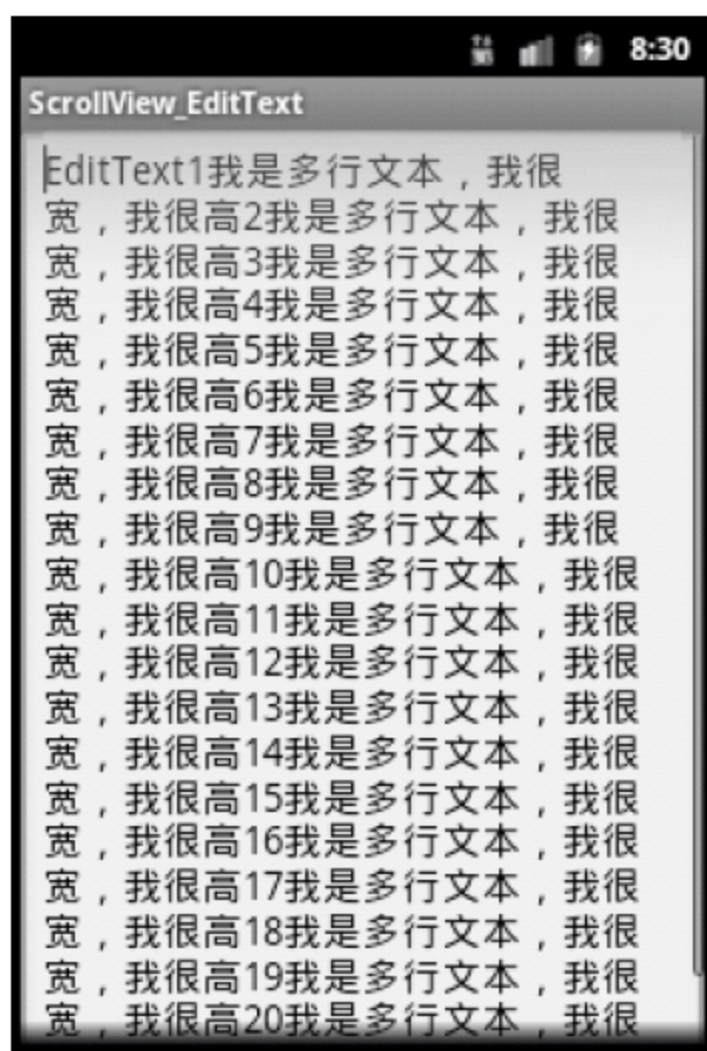 8:30
ScrollView_EditText
EditText1我是多行文本，我很
宽，我很高2我是多行文本，我很
宽，我很高3我是多行文本，我很
宽，我很高4我是多行文本，我很
宽，我很高5我是多行文本，我很
宽，我很高6我是多行文本，我很
宽，我很高7我是多行文本，我很
宽，我很高8我是多行文本，我很
宽，我很高9我是多行文本，我很
宽，我很高10我是多行文本，我很
宽，我很高11我是多行文本，我很
宽，我很高12我是多行文本，我很
宽，我很高13我是多行文本，我很
宽，我很高14我是多行文本，我很
宽，我很高15我是多行文本，我很
宽，我很高16我是多行文本，我很
宽，我很高17我是多行文本，我很
宽，我很高18我是多行文本，我很
宽，我很高19我是多行文本，我很
宽，我很高20我是多行文本，我很